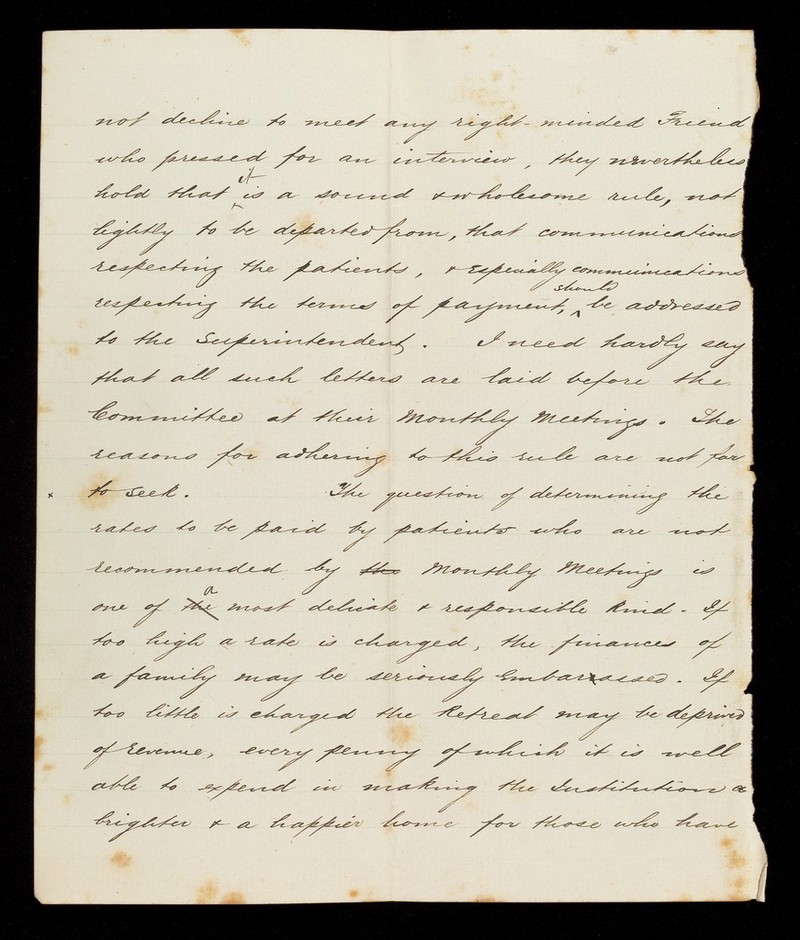 not decline to meet any right-minded Friend
who pressed for an interview, they nevertheless
hold that it is a sound & wholesome rule, not
lightly to be departed from, that communications
respecting the patients, & especially communications
respecting the terms of payment, should be addressed
to the Superintendent. I need hardly say
that all such letters are laid before the
Committee at their Monthly Meetings. The
reasons for adhering to this rule are not far
x to seek. The question of determining the
rates to be paid by patients who are not
recommended by the Monthly Meetings is
one of the a most delicate & responsible kind. If
too high a rate is charged, the finances of
a family may be seriously embarrassed. If
too little is charged the Retreat may be deprived
of revenue, every penny of which it is well
able to expend in making the Institution a
brighter & a happier home for those who have